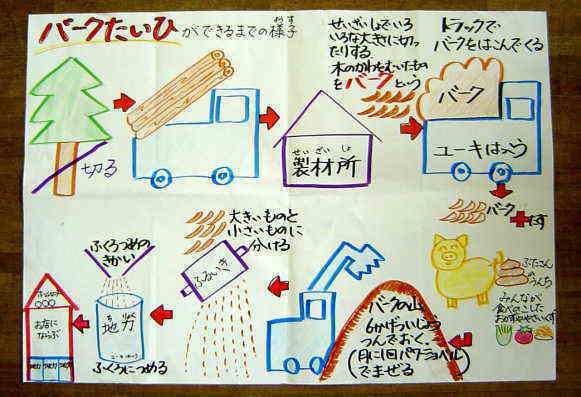 バークたいひができるまでの様子
ようす
切る
せいざいしょ
製材所
せいざいしょでいろ
いろな大きさに切っ
たりする
木のかわをむいたもの
をバークという
トラックで
バークをはこんでくる
バーク
ユーキはっこう
バーク
たす
ぶたさん
の
うんち
みんなが
食べのこした
おかずややさいくず
バークの山
6かげついじょう
つんでおく。
(月に1回パワーショベル
でまぜる)
大きいものと
小さいものに
分ける
ふるいき
ふくろつめの
きかい
ちりょく
地力
ふくろにつめる
お店に
ならぶ